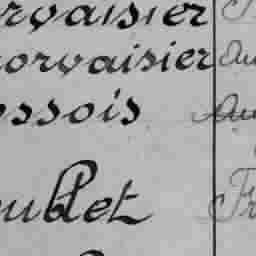 rvaisier
orvaisier Au
ssois Au
ublet Fr